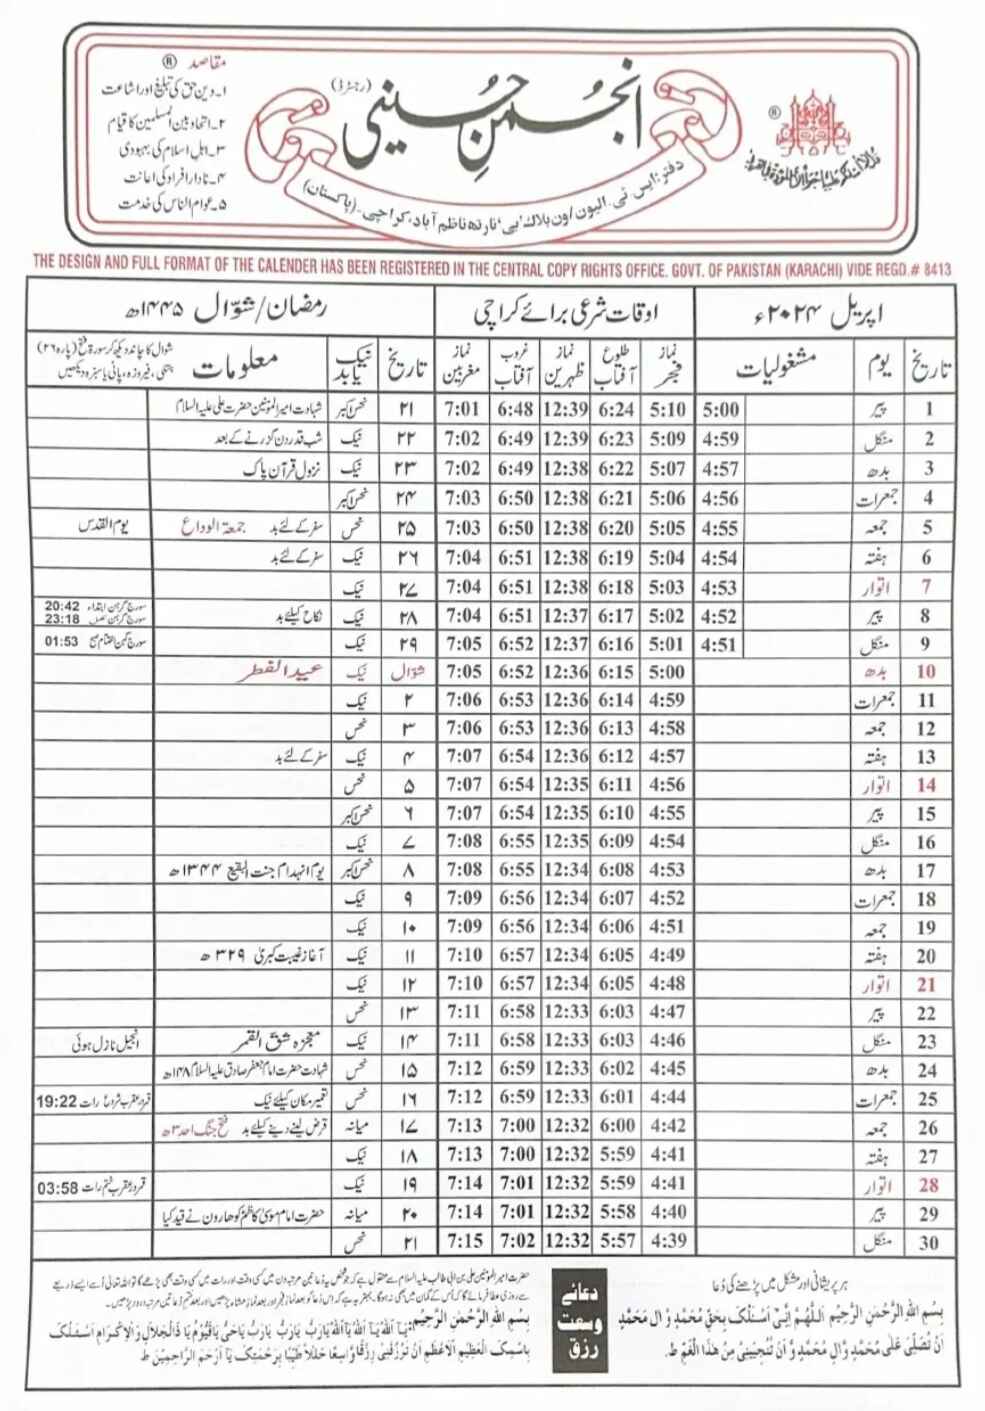 مقاصد ®
۱۔ دین حق کی تبلیغ اور اشاعت
۲۔ اتحاد بین المسلمین کا قیام
۳۔ اہل اسلام کی بہبودی
۴۔ نادار افراد کی اعانت
۵۔ عوام الناس کی خدمت
انجمنِ حسینی (رجسٹرڈ)
®
دفتر: ایس۔ٹی۔الیون/ون بلاک ’بی‘ نارتھ ناظم آباد، کراچی۔ (پاکستان)
THE DESIGN AND FULL FORMAT OF THE CALENDER HAS BEEN REGISTERED IN THE CENTRAL COPY RIGHTS OFFICE. GOVT. OF PAKISTAN (KARACHI) VIDE REGD.# 8413
اپریل ۲۰۲۴ء اوقات شرعی برائے کراچی رمضان/شوّال ۱۴۴۵ھ
تاریخ یوم مشغولیات نماز فجر طلوع آفتاب نماز ظہرین غروب آفتاب نماز مغربین تاریخ نیک یا بد معلومات شوال کا چاند دیکھ کر سورۃ فتح (پارہ ۲۶) پڑھیں، فیروزہ، پانی یا سبزہ دیکھیں
1 پیر 5:00 5:10 6:24 12:39 6:48 7:01 ۲۱ نحس اکبر شہادت امیر المومنین حضرت علی علیہ السلام
2 منگل 4:59 5:09 6:23 12:39 6:49 7:02 ۲۲ نیک شب قدر دن گزرنے کے بعد
3 بدھ 4:57 5:07 6:22 12:38 6:49 7:02 ۲۳ نیک نزول قرآن پاک
4 جمعرات 4:56 5:06 6:21 12:38 6:50 7:03 ۲۴ نحس اکبر
5 جمعہ 4:55 5:05 6:20 12:38 6:50 7:03 ۲۵ نحس سفر کے لئے بد جمعۃ الوداع یوم القدس
6 ہفتہ 4:54 5:04 6:19 12:38 6:51 7:04 ۲۶ نیک سفر کے لئے بد
7 اتوار 4:53 5:03 6:18 12:38 6:51 7:04 ۲۷ نیک
8 پیر 4:52 5:02 6:17 12:37 6:51 7:04 ۲۸ نیک نکاح کیلئے بد سورج گرہن ابتداء 20:42 سورج گرہن 23:18
9 منگل 4:51 5:01 6:16 12:37 6:52 7:05 ۲۹ نیک سورج گہن اختتام صبح 01:53
10 بدھ 5:00 6:15 12:36 6:52 7:05 شوّال نیک عید الفطر
11 جمعرات 4:59 6:14 12:36 6:53 7:06 ۲ نیک
12 جمعہ 4:58 6:13 12:36 6:53 7:06 ۳ نحس
13 ہفتہ 4:57 6:12 12:36 6:54 7:07 ۴ نیک سفر کے لئے بد
14 اتوار 4:56 6:11 12:35 6:54 7:07 ۵ نحس
15 پیر 4:55 6:10 12:35 6:54 7:07 ۶ نحس اکبر
16 منگل 4:54 6:09 12:35 6:55 7:08 ۷ نیک
17 بدھ 4:53 6:08 12:34 6:55 7:08 ۸ نحس اکبر یوم انہدام جنت البقیع ۱۳۴۴ھ
18 جمعرات 4:52 6:07 12:34 6:56 7:09 ۹ نیک
19 جمعہ 4:51 6:06 12:34 6:56 7:09 ۱۰ نیک
20 ہفتہ 4:49 6:05 12:34 6:57 7:10 ۱۱ نیک آغاز غیبت کبریٰ ۳۲۹ھ
21 اتوار 4:48 6:05 12:34 6:57 7:10 ۱۲ نیک
22 پیر 4:47 6:03 12:33 6:58 7:11 ۱۳ نحس
23 منگل 4:46 6:03 12:33 6:58 7:11 ۱۴ نیک معجزہ شق القمر انجیل نازل ہوئی
24 بدھ 4:45 6:02 12:33 6:59 7:12 ۱۵ نحس شہادت حضرت امام جعفر صادق علیہ السلام ۱۴۸ھ
25 جمعرات 4:44 6:01 12:33 6:59 7:12 ۱۶ نحس تعمیر مکان کیلئے نیک قمر در عقرب شروع رات 19:22
26 جمعہ 4:42 6:00 12:32 7:00 7:13 ۱۷ میانہ قرض لینے دینے کیلئے بد فتح جنگ احد ۳ھ
27 ہفتہ 4:41 5:59 12:32 7:00 7:13 ۱۸ نیک
28 اتوار 4:41 5:59 12:32 7:01 7:14 ۱۹ نیک قمر در عقرب ختم رات 03:58
29 پیر 4:40 5:58 12:32 7:01 7:14 ۲۰ میانہ حضرت امام موسیٰ کاظم کو ہارون نے قید کیا
30 منگل 4:39 5:57 12:32 7:02 7:15 ۲۱ نحس
ہر پریشانی اور مشکل میں پڑھنے کی دُعا
بِسْمِ اللهِ الرَّحْمٰنِ الرَّحِيْمِ اَللّٰهُمَّ اِنِّىْ اَسْئَلُكَ بِحَقِّ مُحَمَّدٍ وَّ اٰلِ مُحَمَّدٍ
اَنْ تُصَلِّىَ عَلٰى مُحَمَّدٍ وَّاٰلِ مُحَمَّدٍ وَّ اَنْ تُنْجِيَنِىْ مِنْ هٰذَا الْغَمِّ ط۔
دعائے
وسعت
رزق
حضرت امیر المومنین علی بن ابی طالب علیہ السلام سے منقول ہے کہ جو شخص یہ دُعا تین مرتبہ دن میں کسی وقت اور رات میں کسی وقت بھی پڑھے گا تو اللہ تعالیٰ اُسے ایسے ذریعے
سے روزی عطا فرمائے گا کہ اُس کے گمان میں بھی نہ ہوگا۔
بِسْمِ اللهِ الرَّحْمٰنِ الرَّحِيْمِ: يَا اَللهُ يَا اَللهُ يَا اَللهُ يَا رَبُّ يَا رَبُّ يَا رَبُّ يَا حَىُّ يَا قَيُّوْمُ يَا ذَالْجَلَالِ وَالْاِكْرَامِ اَسْئَلُكَ
بِاسْمِكَ الْعَظِيْمِ الْاَعْظَمِ اَنْ تَرْزُقَنِىْ رِزْقًا وَّاسِعًا حَلٰلاً طَيِّبًا بِرَحْمَتِكَ يَا اَرْحَمَ الرَّاحِمِيْنَ ط